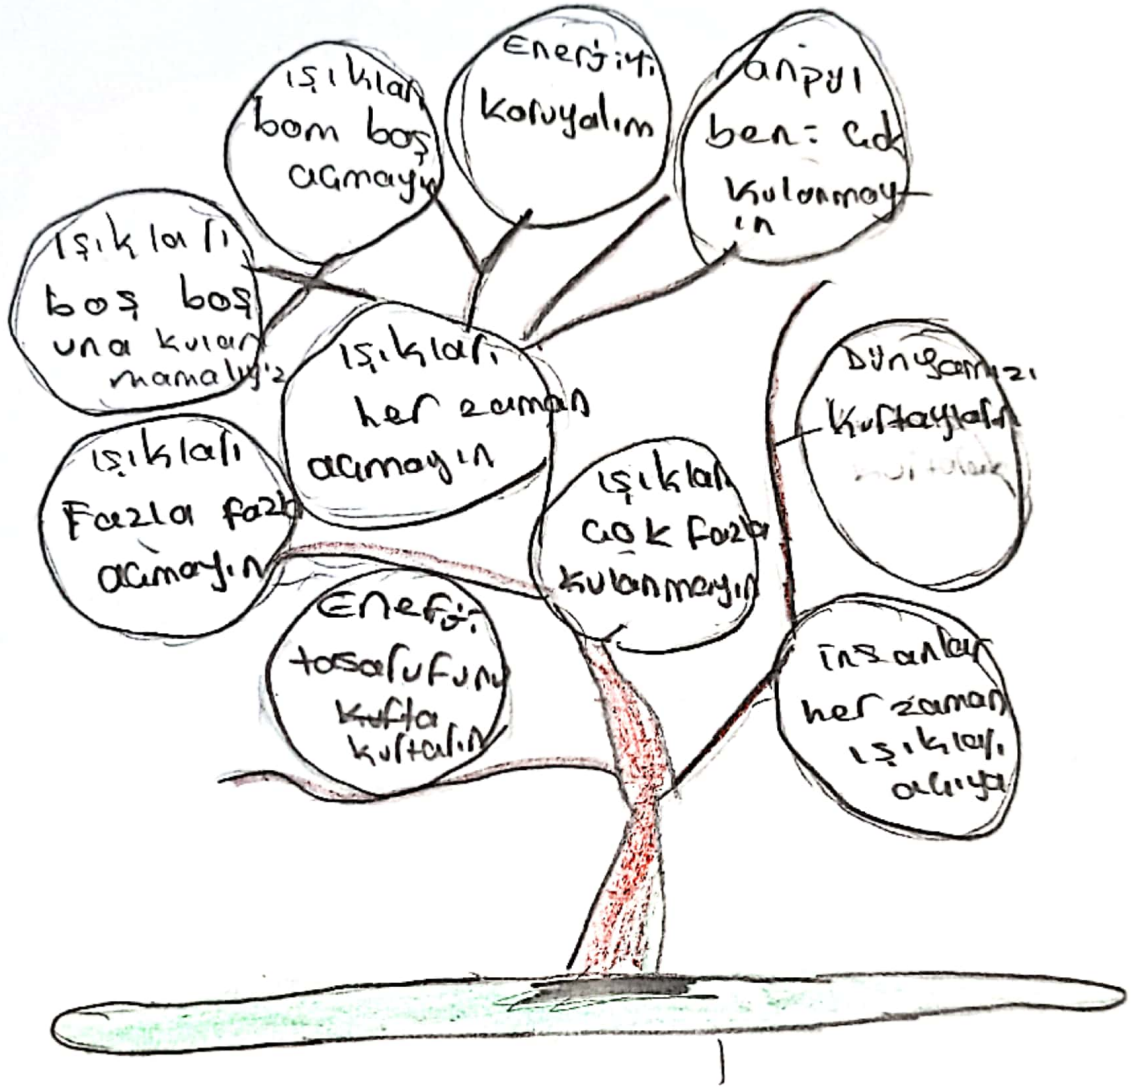 ışıkları
bom boş
açmayın
Enerjiyi
koruyalım
anpyı
ben: çok
kulanmay
ın
ışıkları
boş boş
una kulan
mamalıyız
ışıkları
her zaman
açmayın
Dünyamızı
kurtaylarin
ışıkları
Fazla fazla
açmayın
ışıkları
çok fazla
kulanmayın
Enerji
tasarufunu
kurta
kurtarın
insanlar
her zaman
ışıkları
açıya